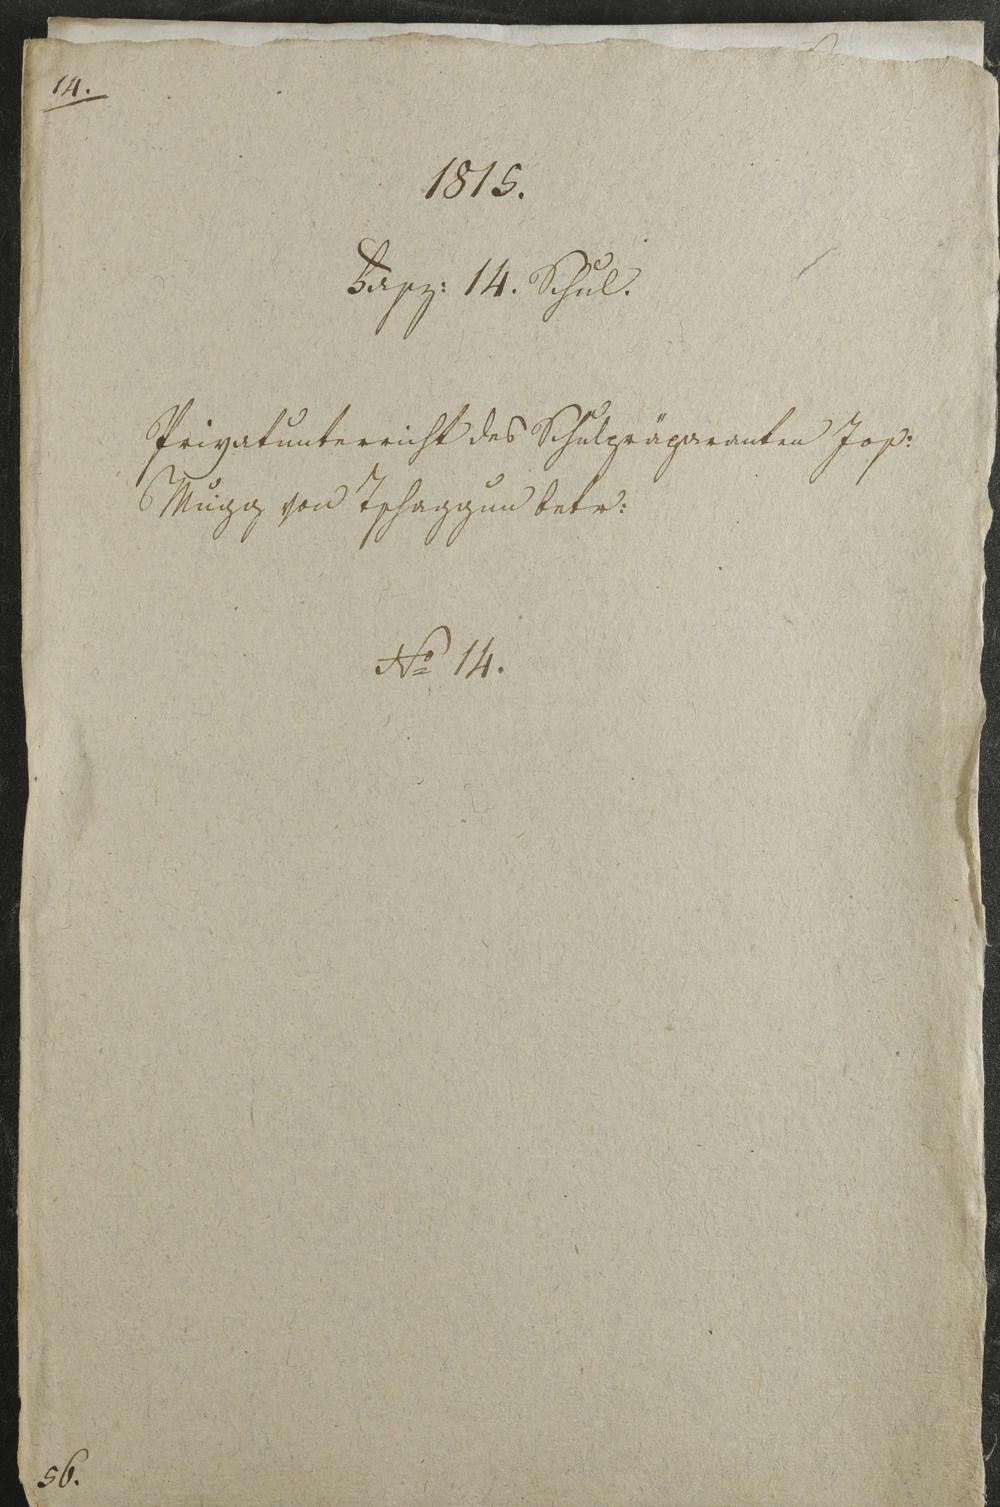 14.
1815.
Fasz: 14. Schul.
Privatunterricht des Schulpräparanten Jos:
von Tschaggun betr:
No 14.
56.